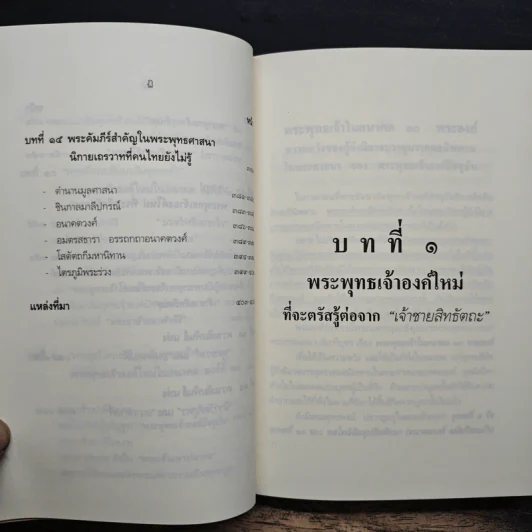 บทที่ ๑๔ พระคัมภีร์สำคัญในพระพุทธศาสนา
นิกายเถรวาทที่คนไทยยังไม่รู้
- ตำนานมูลศาสนา
- ชินกาลมาลีปกรณ์
- อนาคตวงศ์
- อมตรสธารา อรรถกถาอนาคตวงศ์
- โสตัตถกีมหานิทาน
- ไตรภูมิพระร่วง
แหล่งที่มา
บทที่ ๑
พระพุทธเจ้าองค์ใหม่
ที่จะตรัสรู้ต่อจาก “เจ้าชายสิทธัตถะ”